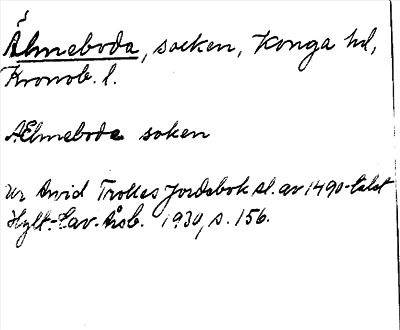 Älmeboda, socken, Konga hd,
Kronob. l.
AElmebode soken
Ur Arvid Trolles Jordebok sl. av 1490-talet
Hylt.-Cav. Årsb. 1930, s. 156.